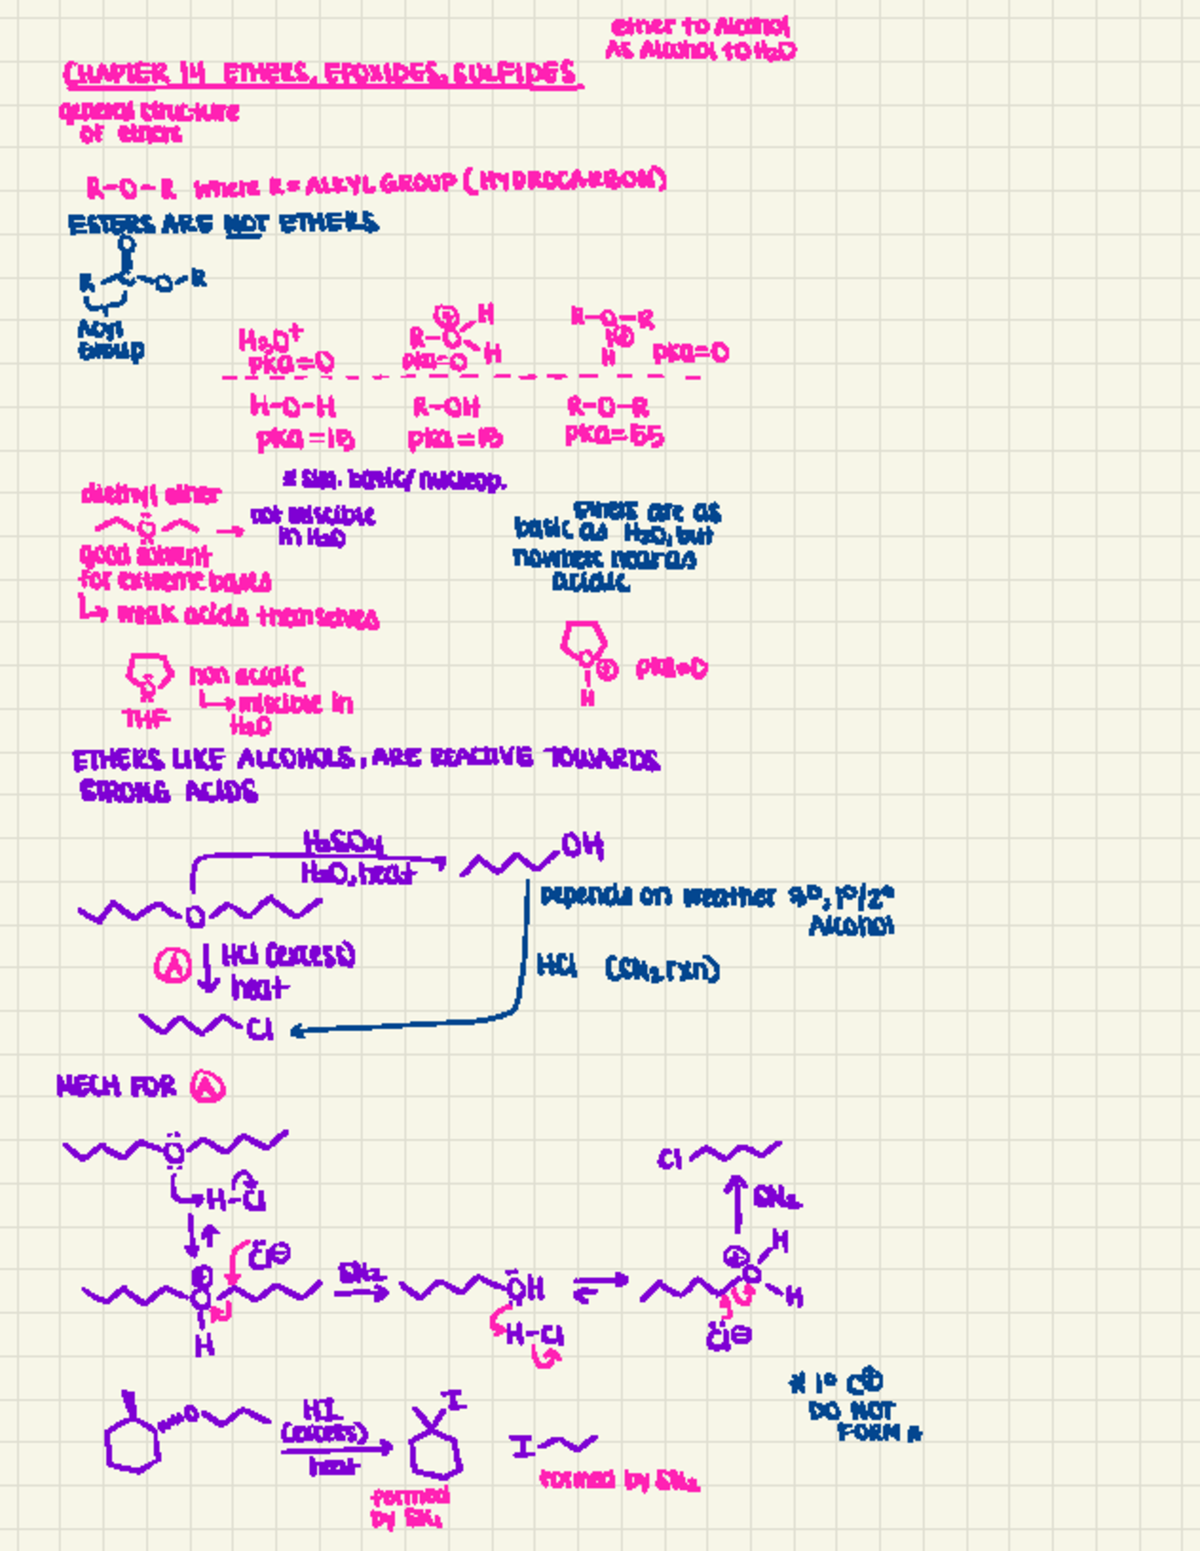 ether to Alcohol
As Alcohol to H₂O
CHAPTER 14 ETHERS, EPOXIDES, SULFIDES
general structure
of ethers
R-O-R where R = ALKYL GROUP (HYDROCARBON)
ESTERS ARE NOT ETHERS
O
R C-O-R
Acyl
Group
H₃O⁺
pka=0
⊕ H
R-O
H
pka=0
R-O-R
⊕
H pka=0
H-O-H
pka=15
R-OH
pka=
R-O-R
pka=55
* sim. basic/nucleop.
diethyl ether
O
→ not miscible
in H₂O
good solvent
for extreme bases
↳ weak acids themselves
ethers are as
basic as H₂O, but
nowhere near as
acidic
O
THF
non acidic
↳ miscible in
H₂O
O ⊕
H
pka=0
ETHERS LIKE ALCOHOLS, ARE REACTIVE TOWARDS
STRONG ACIDS
H₂SO₄
H₂O, heat
OH
O
Depends on weather 3°, 1°/2°
Alcohol
A
HCl (excess)
heat
HCl (SN₂ rxn)
Cl
MECH FOR A
O
H-Cl
Cl
SN₂
⊕
O
H
Cl⊖
SN₂
OH
H-Cl
⊕ H
O
H
Cl⊖
* 1° C⊕
DO NOT
FORM *
O
HI
(excess)
heat
I
formed
by SN₁
I
formed by SN₂